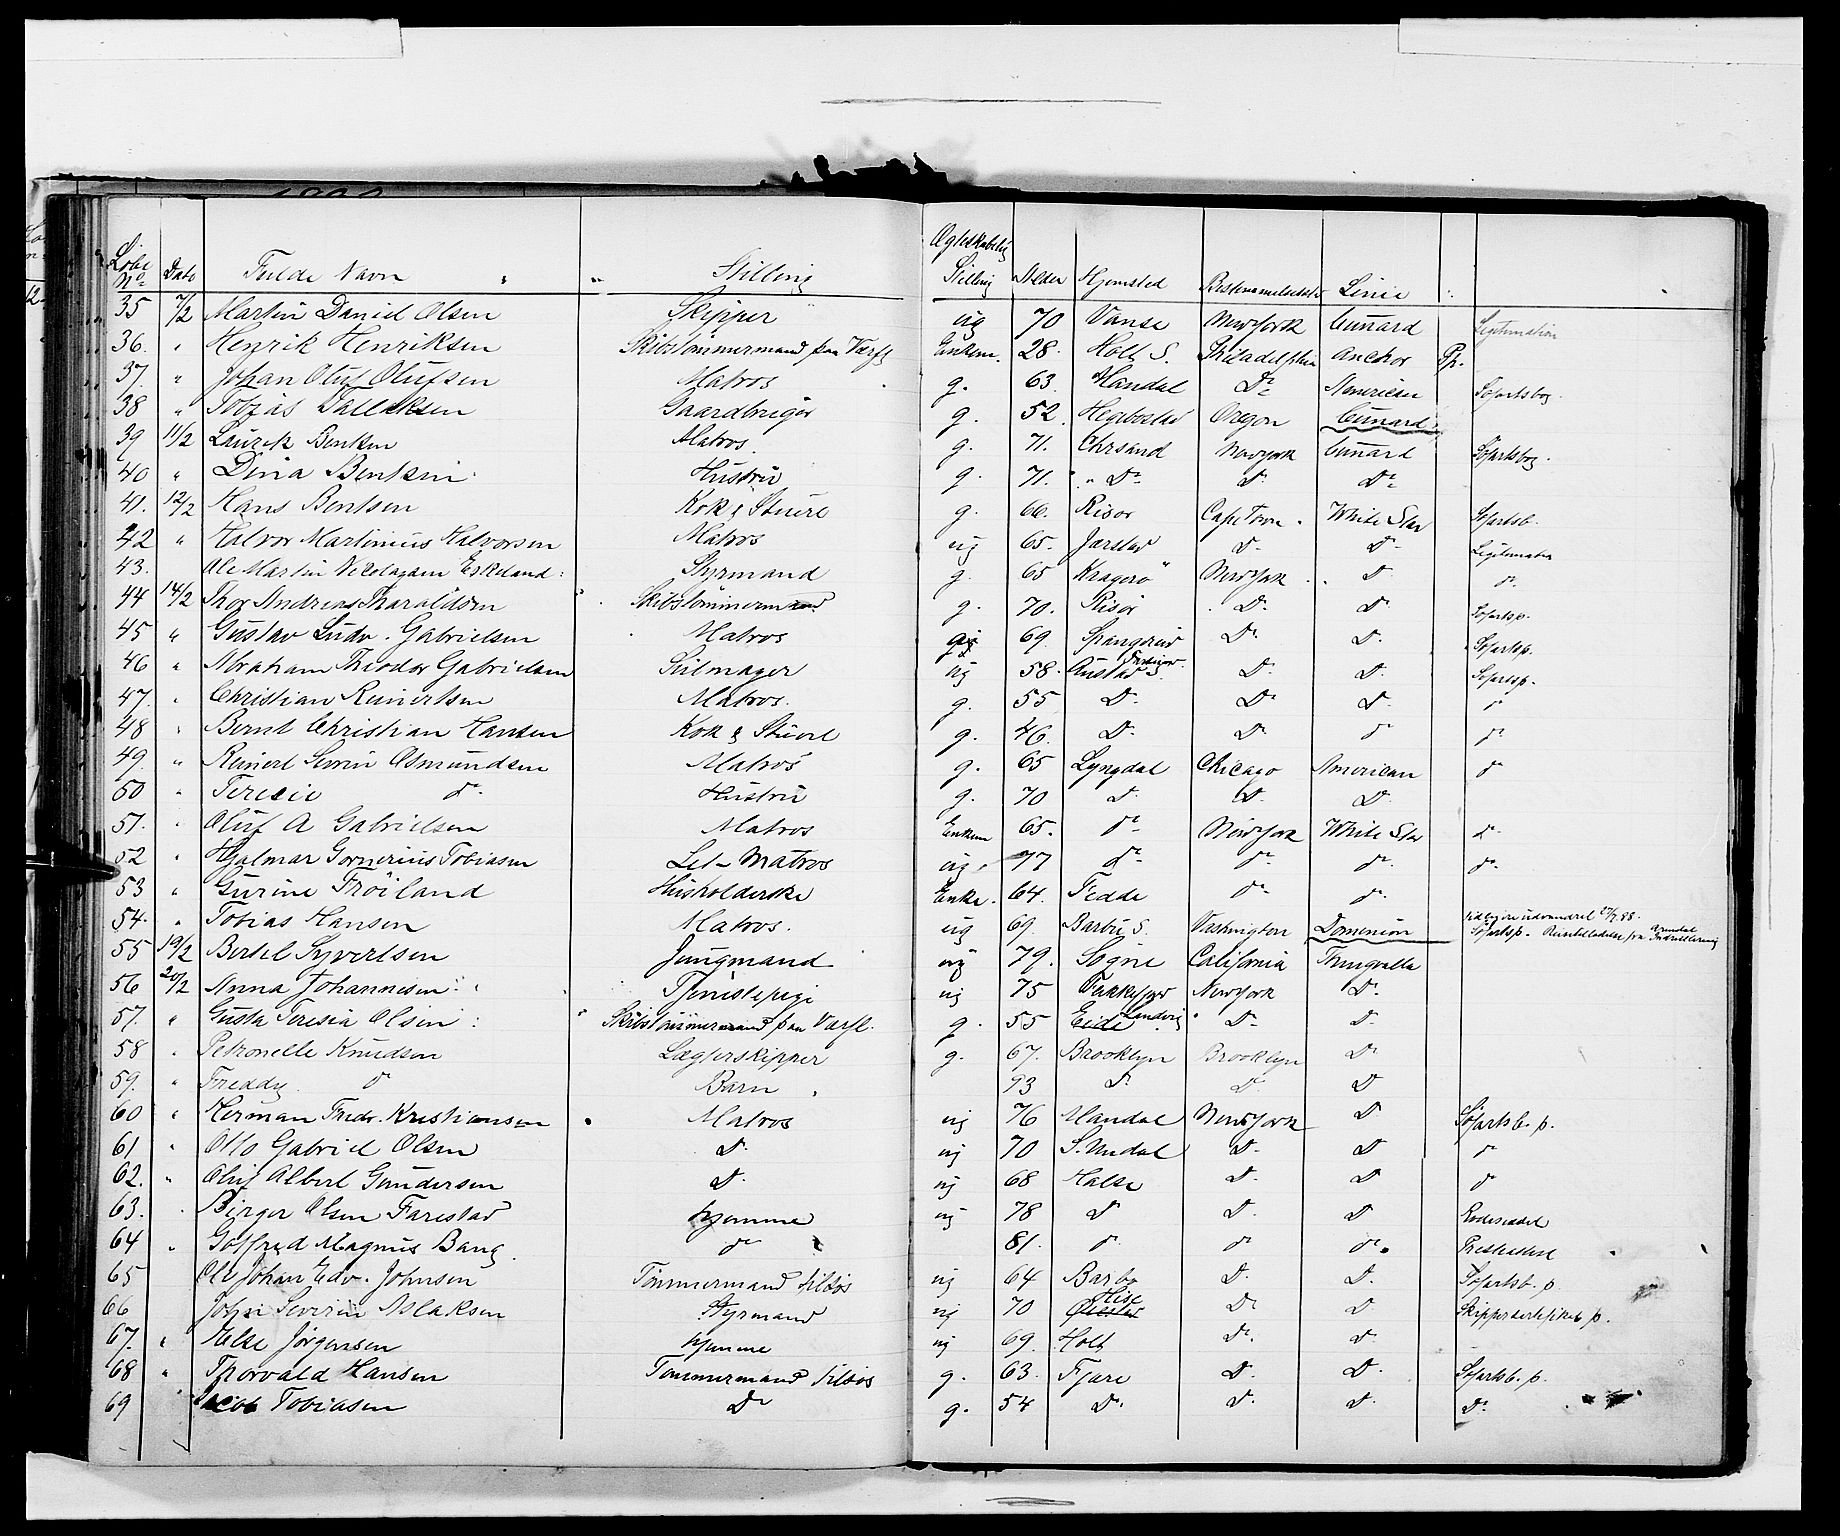 Løbe No Dato Fulde Navn Stilling Ægteskabelig Stilling Alder Hjemsted Bestemmelsessted Linie
35 7/2 Martin Daniel Olsen Skipper ug 70 Vanse Newyork Cunard Legitimation
36. " Henrik Henriksen Skibstømmermand paa Værft Enkem. 28. Holt S. Philadelphia Anchor Pp.
37. " Johan Oluf Olufsen Matros g. 63. Mandal Do American Søfartsbog.
38 " Tobias Gaardbruger g. 52. Hegbostad Oregon Cunard
39 11/2 Bentsen Matros g. 71. Chrsand Newyork Cunard Søfartsbog.
40 " Dina Bentsen Hustru g. 71. " Do Do Do
41. 12/2 Hans Bentsen Kok & Stuert g. 66. Risør Cape Town. White Star Søfartsb.
42 " Halvor Martinius Halvorsen Matros ug 65. Do Do Legitimation
43. Ole Martin Nicolaysen Eskeland Styrmand g. 65 Kragerø Newyork Do do.
44 14/2 Thor Andreas Tharaldsen Skibstømmermand g. 70. Risør Do Do Søfartsp.
45 " Gustav Ludv. Gabrielsen Matros 69. Spangereid Do Do Søfartsp.
46 " Abraham Theodor Gabrielsen Seilmager ug 58. Austad S. Do Do. Søfartsp.
47. " Christian Reinertsen Matros. g. 55 Do Do Do do
48 " Bernt Christian Hansen Kok & Stuert g. 46. Do Do do do
49. " Reinert Severin Osmundsen Matros g. 65 Lyngdal Chicago American do
50 " Teresie do Hustru g. 70 Do Do Do
51. " Oluf A Gabrielsen Matros Enkem 65. do New York White Star do
52 " Hjalmar Tobiasen Let-Matros ug. 77 do do do. do.
53 " Gurine Frøiland Husholderske Enke. 64. Fedde do do.
54. " Tobias Hansen Matros. ug 69. Barbu S. Washington Dominion tidligere udvandret 27/7.88. Søfartsp. Reisetilladelse fra Arendal Indrullering
55 19/2 Bertel Syvertsen Jungmand ug 79. Søgne California Thingvalla
56 20/2 Anna Johannesen Tjenestepige ug 75 Newyork Do.
57. " Gusta Teresia Olsen Skibstømmermand paa Værft. g. 55 Eide Landvig Do Do
58 " Petronelle Knudsen Lægterskipper g. 67. Brooklyn Brooklyn Do
59. " Freddy do Barn 93 Do Do Do
60 " Herman Fredr. Kristiansen Matros ug 76 Mandal Newyork Do Søfartsb. p.
61 " Otto Gabriel Olsen Do ug 70 S. Undal Do Do do
62. " Oluf Albert Gundersen Do. ug 68 Halse Do Do do
63. Birger Olsen Farestad hjemme ug 78 Do Do. Do Rodeseddel
64 " Gotfred Magnus Bang do 81. do do do.
65 Ole Johan Edv. Johnsen Tømmermand tilsøs ug 64 Barbo Do. Do. Søfartsb. p.
66 John Severin Aslaksen Styrmand ug 70 Hise Do Do Skippercertifikat p.
67. " Else Jørgensen hjemme ug 69. Holt Do. Do.
68 " Thorvald Hansen Tømmermand tilsøs g. 63. Fjære Do. Do. Søfartsb. p.
69 Jacob Tobiasen Do g. 54 Do. Do. Do. Do.